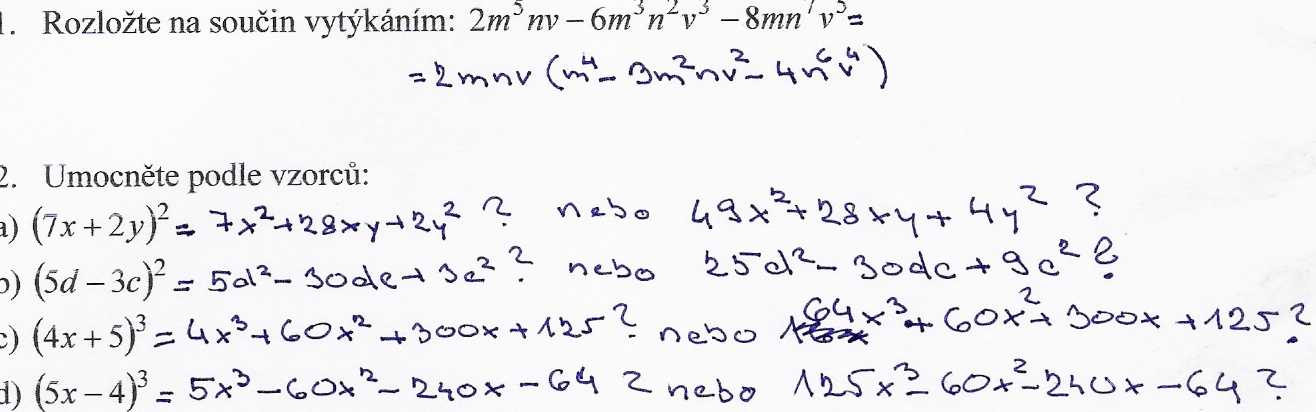 1. Rozložte na součin vytýkáním: 2m⁵nv – 6m³n²v³ – 8mn⁷v⁵=
= 2mnv (m⁴ – 3m²nv² – 4n⁶v⁴)
2. Umocněte podle vzorců:
a) (7x + 2y)² = 7x² + 28xy + 2y² ? nebo 49x² + 28xy + 4y² ?
b) (5d – 3c)² = 5d² – 30dc + 3c² ? nebo 25d² – 30dc + 9c² ?
c) (4x + 5)³ = 4x³ + 60x² + 300x + 125 ? nebo 64x³ + 60x² + 300x + 125 ?
d) (5x – 4)³ = 5x³ – 60x² – 240x – 64 ? nebo 125x³ – 60x² – 240x – 64 ?